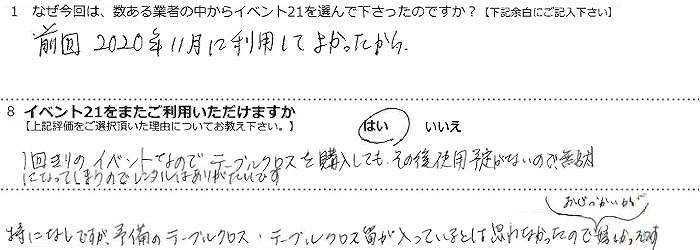 1 なぜ今回は、数ある業者の中からイベント21を選んで下さったのですか？【下記余白にご記入下さい】
前回 2020年11月に利用してよかったから.
8 イベント21をまたご利用いただけますか
【上記評価をご選択頂いた理由についてお教え下さい。】 はい いいえ
1回きりのイベントなので テーブルクロスを購入しても、その後使用予定がないので、無駄
になってしまうのでレンタルはありがたいです
おきづかいが
特になしですが、予備のテーブルクロス・テーブルクロス留が入っているとは思わなかったので嬉しかったです